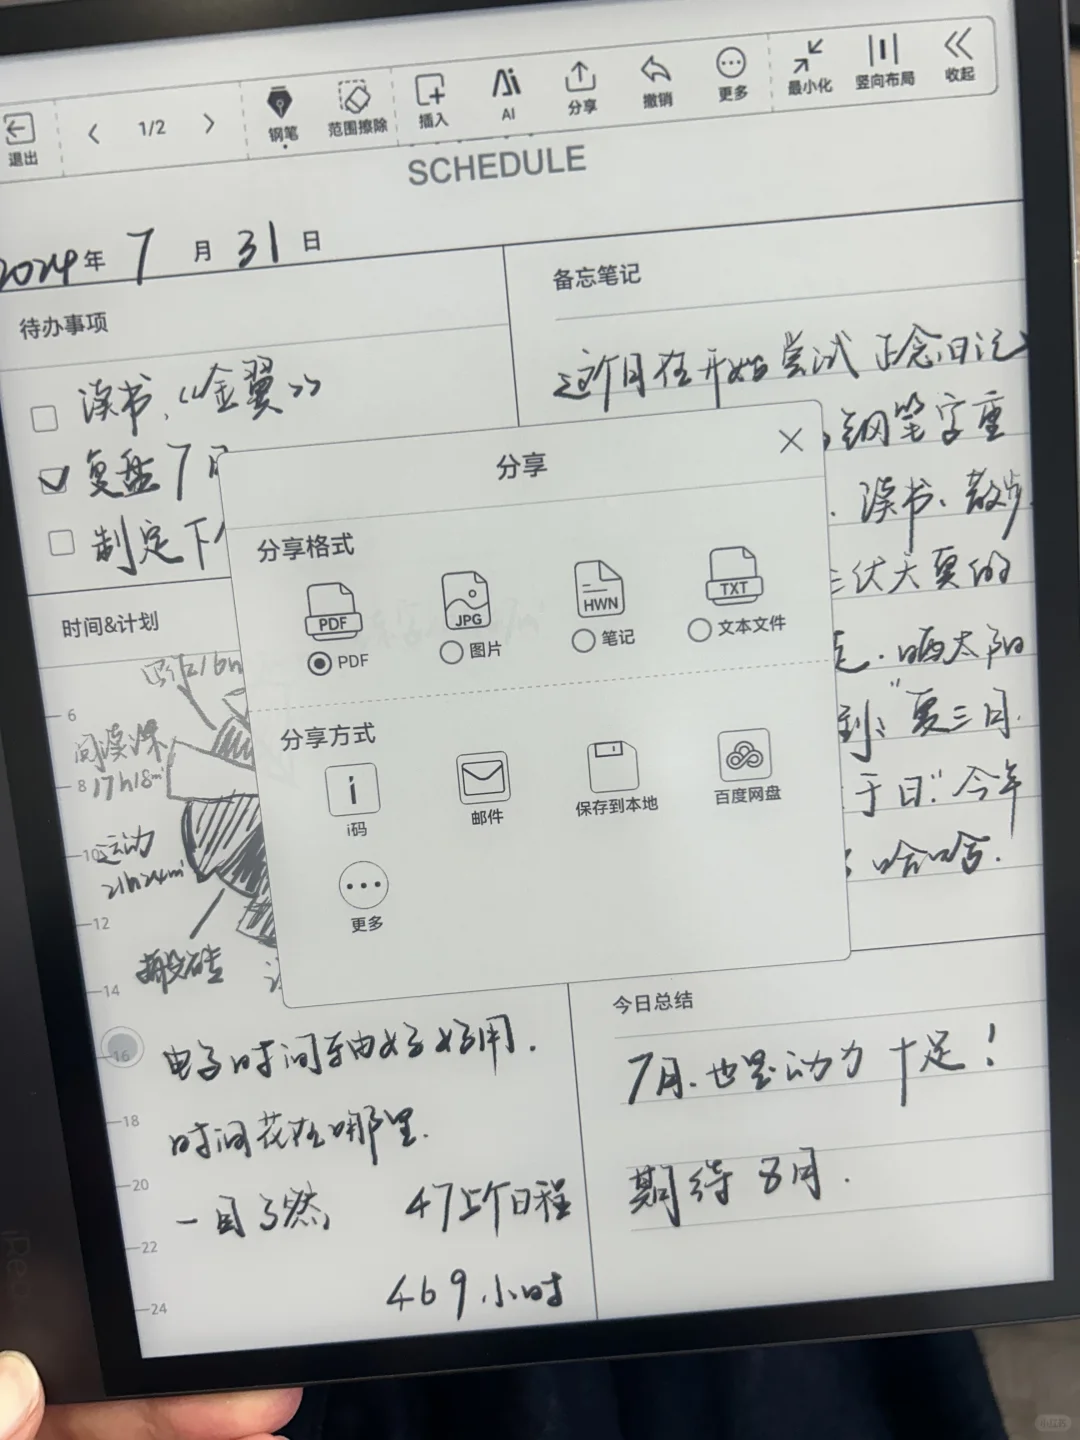 退出
1/2
钢笔
范围擦除
插入
AI
分享
撤销
更多
最小化
竖向布局
收起
SCHEDULE
2024年 7 月 31 日
待办事项
读书《金翼》
复盘7月
制定下
时间&计划
6
8
10
12
14
16
18
20
22
24
阅读
17h18m
运动
21h24m
搬砖
电子时间轴好好用.
时间花在哪里.
一目了然
47个日程
469小时
备忘笔记
这个月在开始尝试正念日记
钢笔字重
读书、散步
三伏天夏的
晒太阳
到:"夏三月.
于日."今年
哈哈.
分享
分享格式
PDF
PDF
JPG
图片
HWN
笔记
TXT
文本文件
分享方式
i码
邮件
保存到本地
百度网盘
更多
今日总结
7月.也是动力十足!
期待8月.
小红书